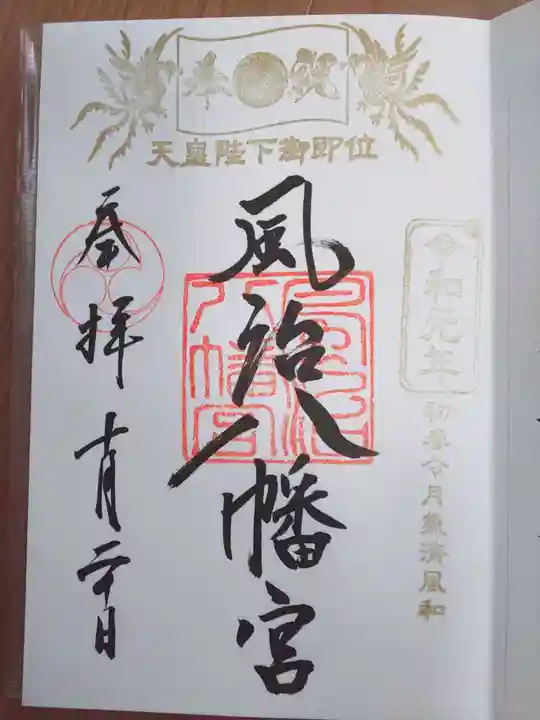 奉祝
天皇陛下御即位
令和元年
初春令月氣淑風和
風治八幡宮
風治八幡宮
奉拝
十月二十日